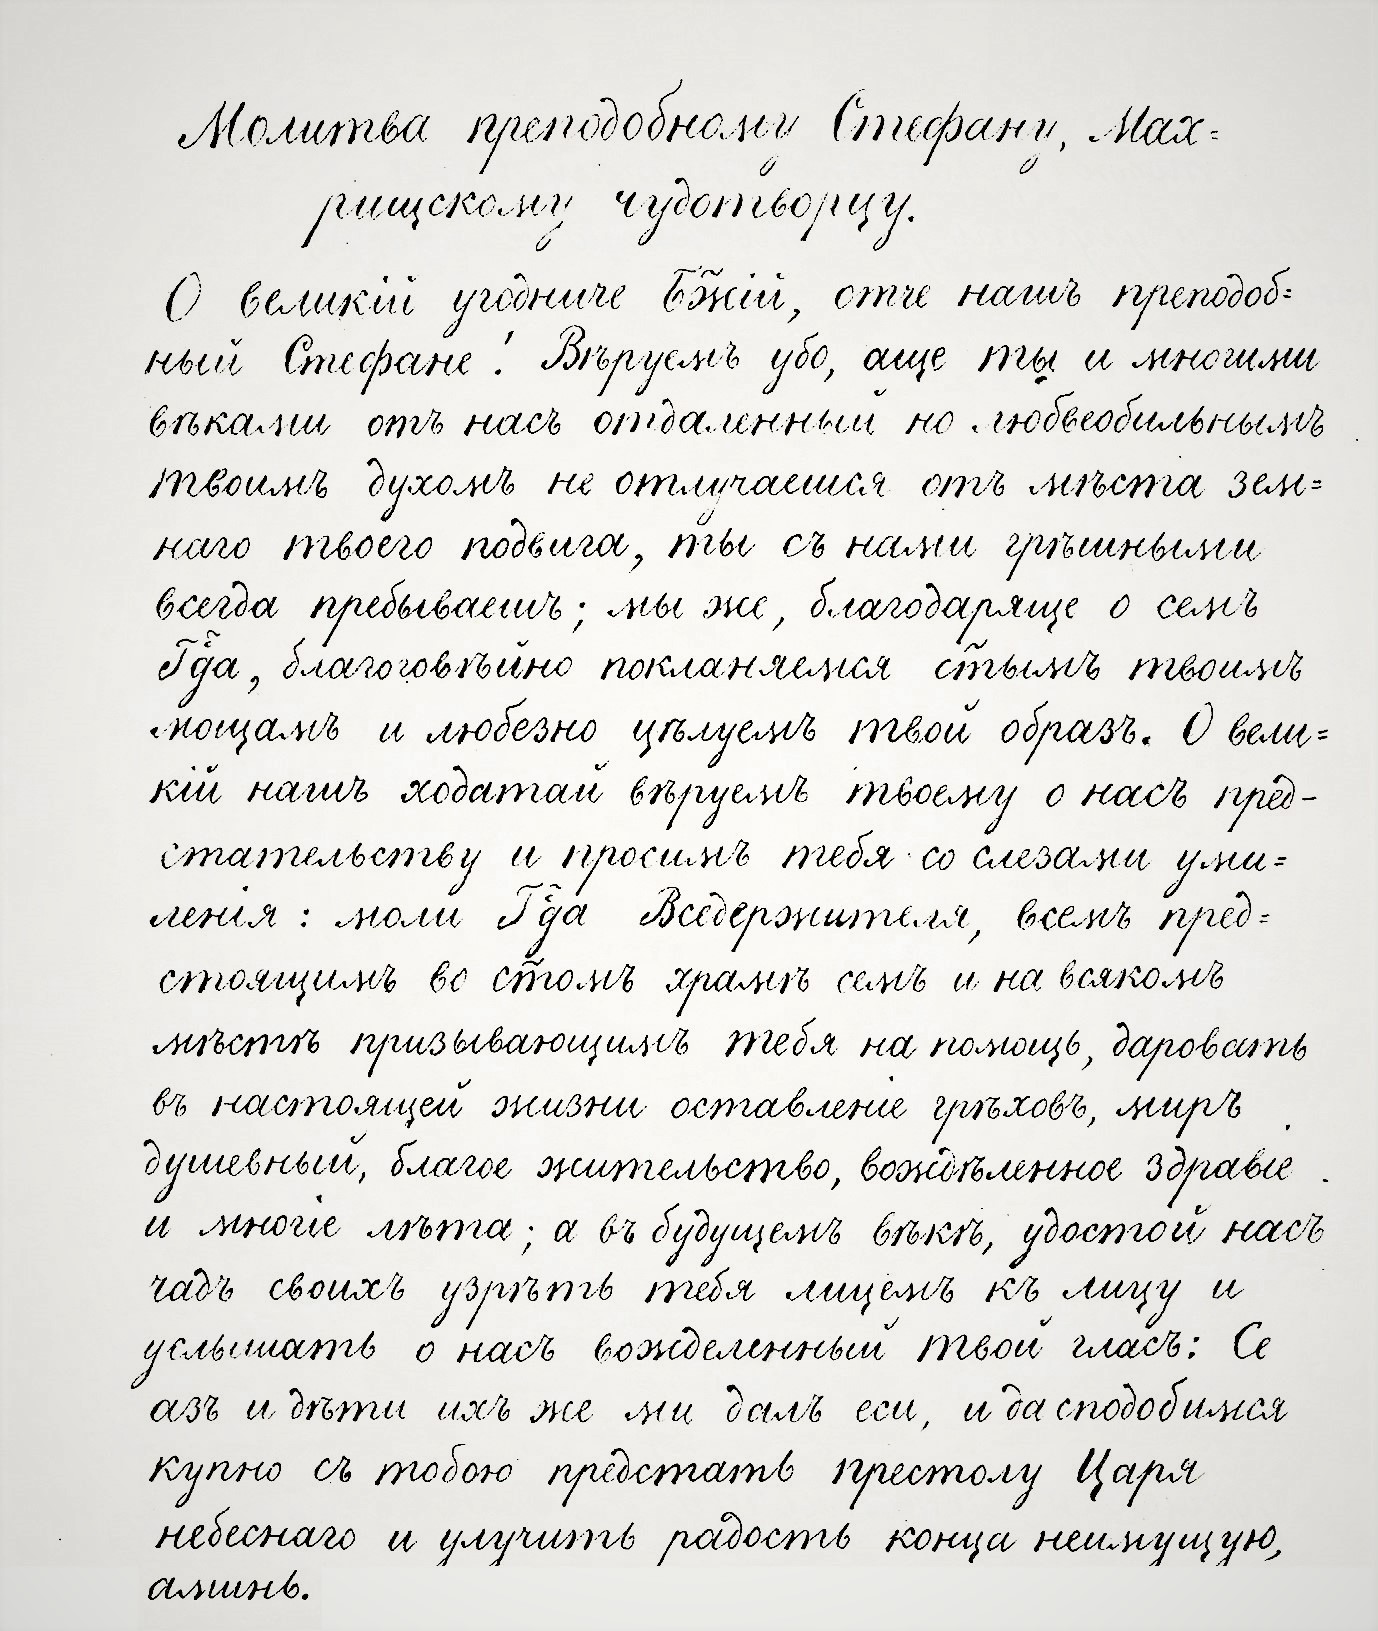 Молитва преподобному Стефану, Мах=
рищскому чудотворцу.
О великій угодниче Бж҃ій, отче нашъ преподоб=
ный Стефане! Вѣруемъ убо, аще ты и многими
вѣками отъ насъ отдаленный но любвеобильнымъ
твоимъ духомъ не отлучаешися отъ мѣста зем=
наго твоего подвига, ты съ нами грѣшными
всегда пребываешъ; мы же, благодаряще о семъ
Гд҃а, благоговѣйно покланяемся ст҃ымъ твоимъ
мощамъ и любезно цѣлуемъ твой образъ. О вели=
кій нашъ ходатай вѣруемъ твоему о насъ пред-
стательству и просимъ тебя со слезами уми=
ленія: моли Гд҃а Вседержителя, всемъ пред=
стоящимъ во ст҃омъ храмѣ семъ и на всякомъ
мѣстѣ призывающимъ тебя на помощь, даровать
въ настоящей жизни оставленіе грѣховъ, миръ
душевный, благое жительство, вождѣленное здравіе
и многіе лѣта; а въ будущемъ вѣкѣ, удостой насъ
чадъ своихъ узрѣть тебя лицемъ къ лицу и
услышать о насъ вожделенный твой гласъ: Се
азъ и дѣти ихъ же ми далъ еси, и да сподобимся
купно съ тобою предстать престолу Царя
небеснаго и улучить радость конца неимущую,
аминь.